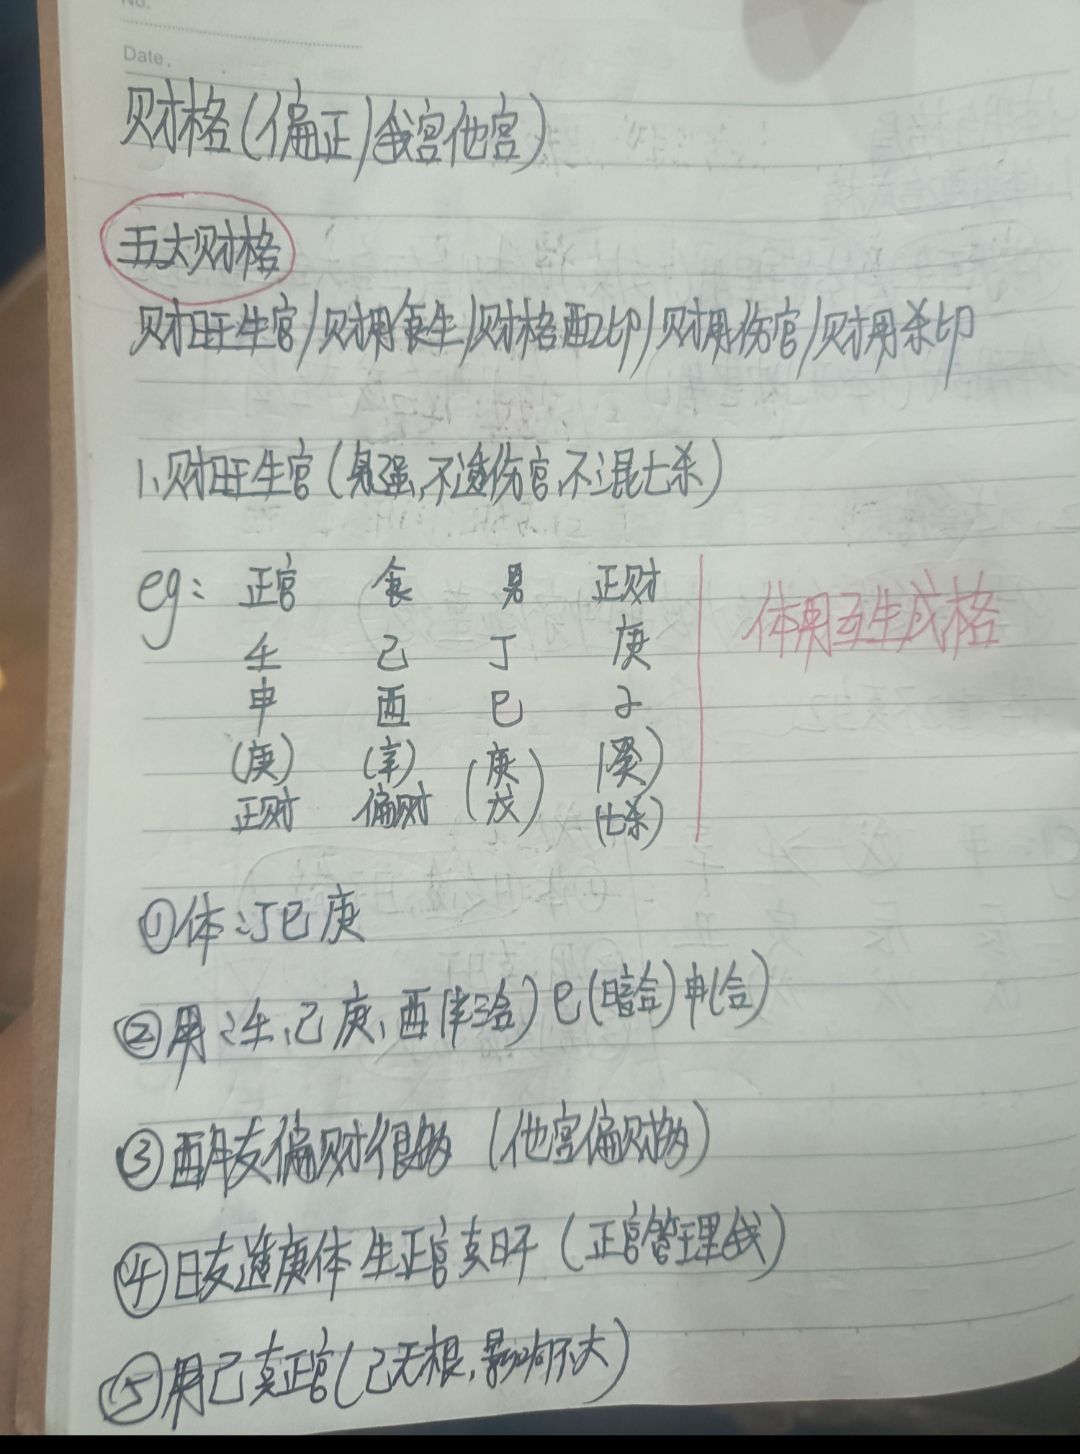 No.
Date.
财格(偏正/我宫他宫)
五大财格
财旺生官/财用食生/财格配印/财用伤官/财用杀印
1.财旺生官(身强,不透伤官,不混七杀)
eg: 正官 食 男 正财
壬 己 丁 庚
申 酉 巳 子
(庚) (辛) (庚戊) (癸)
正财 偏财 (七杀)
体用互生成格
①体:丁巳庚
②用:壬、己庚、酉(半三合)巳(暗合)申(合)
③酉年支偏财很多(他宫偏财多)
④日支透庚体生正官克日干(正官管理我)
⑤用己克正官(己无根,影响不大)